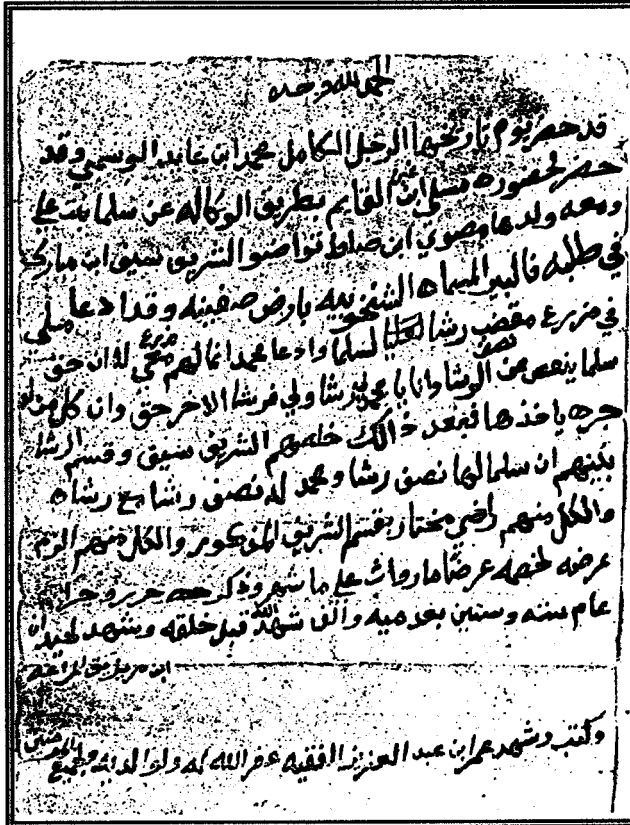 الحمد لله وحده
قد حضر يوم تاريخها الرجل الكامل محمد ابن عايد الوسمي وقد
حضر لحضوره مسلي ابن القايم بطريق الوكاله عن سلما بنت علي
ومعه ولدها ابن تواضو الشريف سيق ابن مبارك
في طلبه فالبير المسماه بارض صفينه وقد ادعا مسلي
في مزرع رشا لسلما وادعا محمد انما لهم مزرع لذان حق
سلما ينقص من نصف الرشا وانا يا محمد لي رشا ولي فرشا الاخر حق وان كل من له
جره ياخذها فبعد ذالك الشريف سيق وقسم الرشا
بينهم ان سلما لها نصف رشا ومحمد له نصف رشا مع رشاه
والكل منهم راضي مختار بقسم الشريف المذكور والكل منهم الزم
عرضه لخصمه عرضا ما على ما وذكر حرر وجرا
عام سته وستين بعد ميه والف شهد الله قبل خلقه وشهد
ابن
وكتب وشهد عمر ابن عبد العزيز الفقيه غفر الله له ولوالديه ولجميع المسلمين